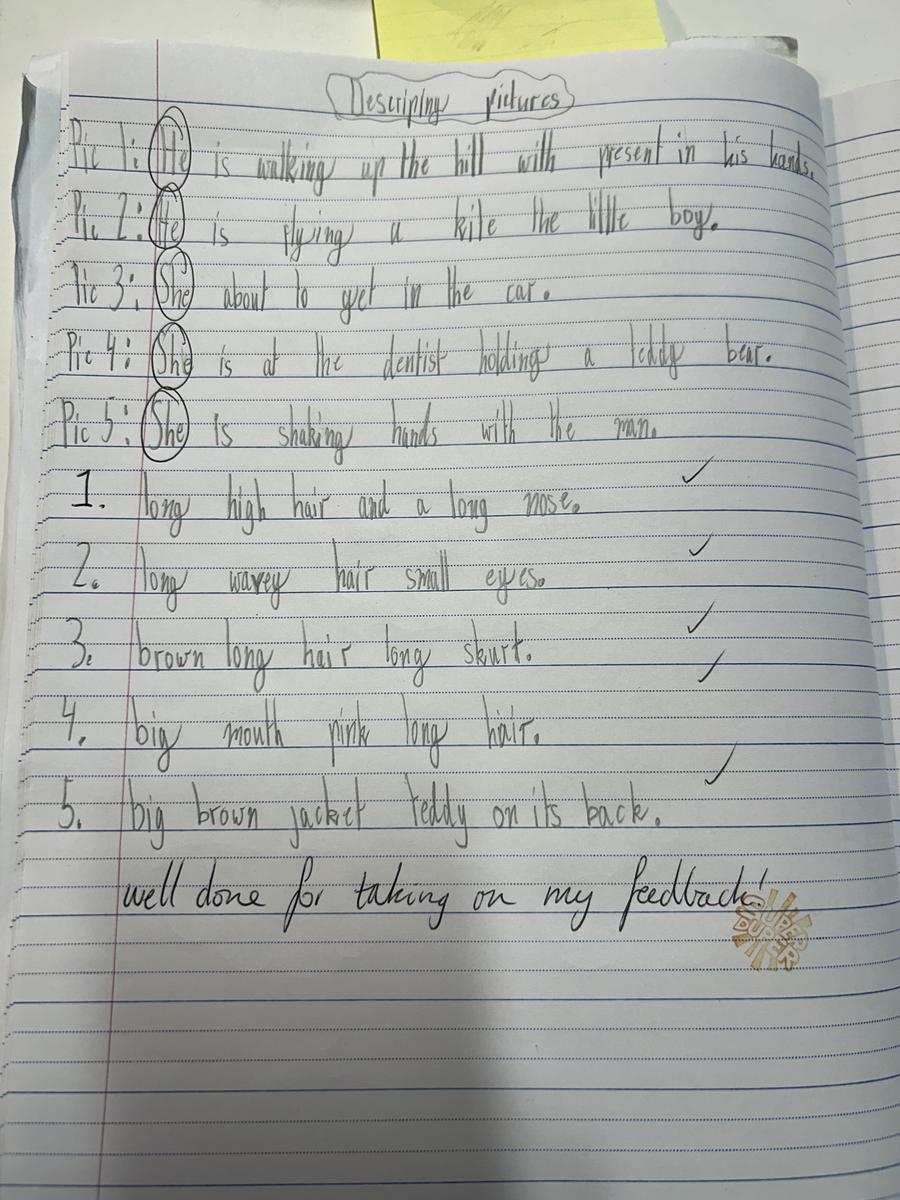 Descriping pictures
Pic 1: He is walking up the hill with present in his hands.
Pic 2: He is flying a kite the little boy.
Pic 3: She about to get in the car.
Pic 4: She is at the dentist holding a teddy bear.
Pic 5: She is shaking hands with the man.
1. long high hair and a long nose.
2. long wavey hair small eyes.
3. brown long hair long skurt.
4. big mouth pink long hair.
5. big brown jacket teddy on its back.
well done for taking on my feedback!
SUPER DUPER